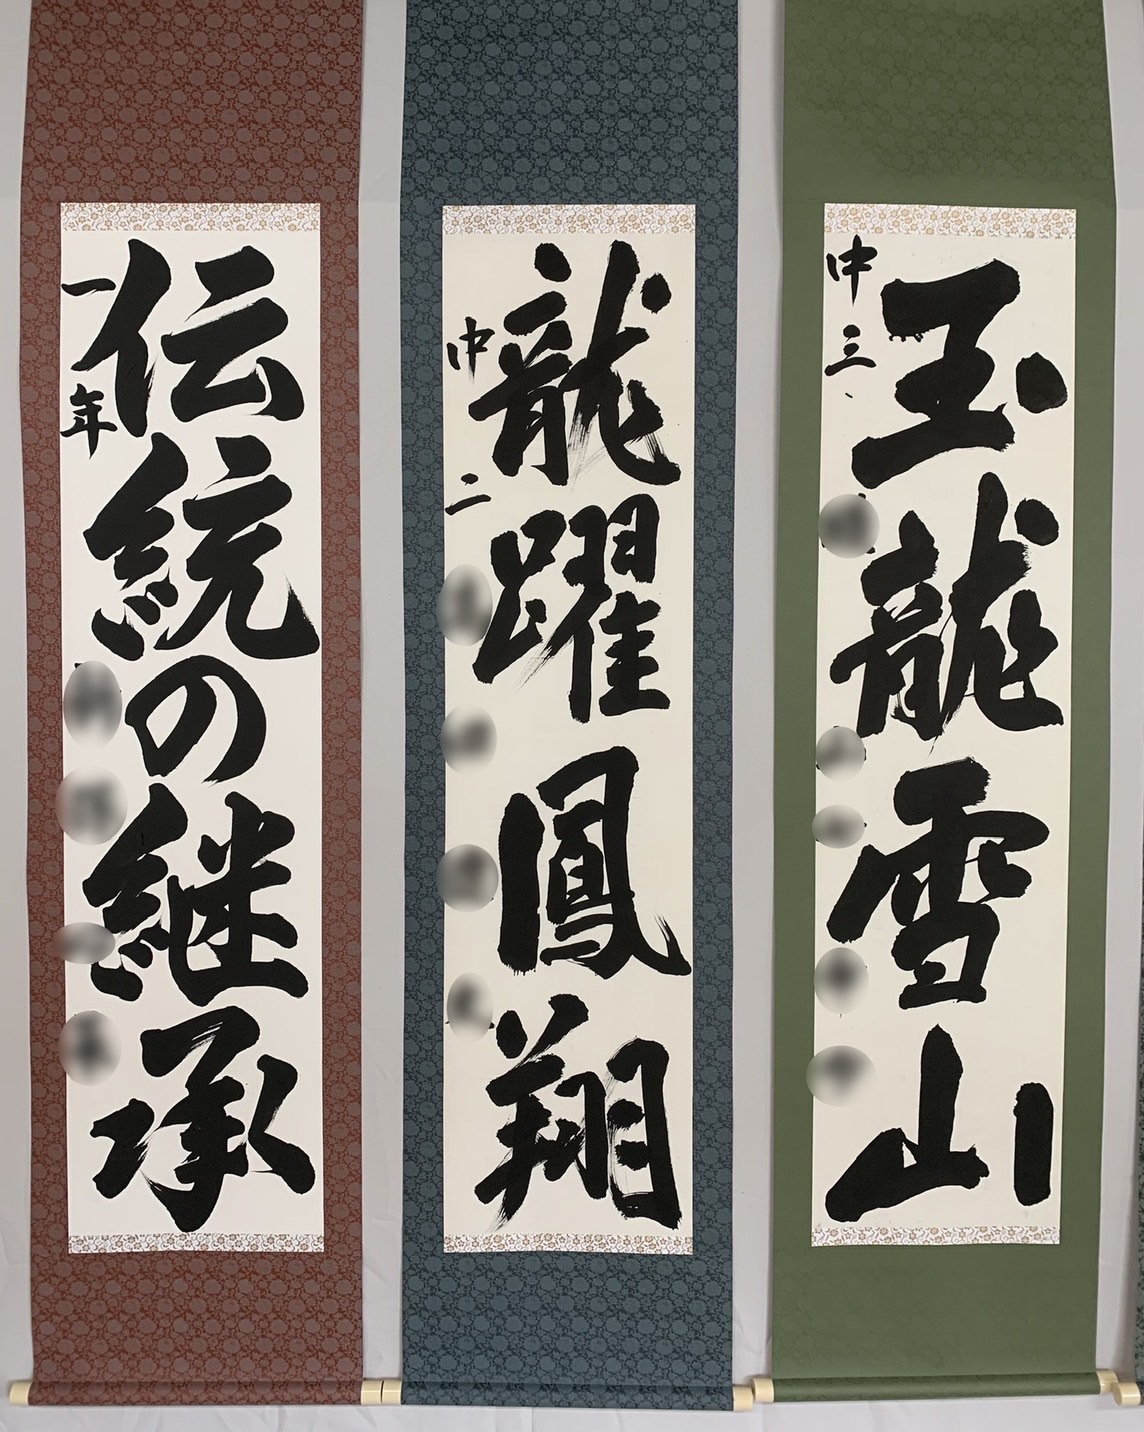 玉龍雪山
中三
龍躍鳳翔
中二
伝統の継承
一年